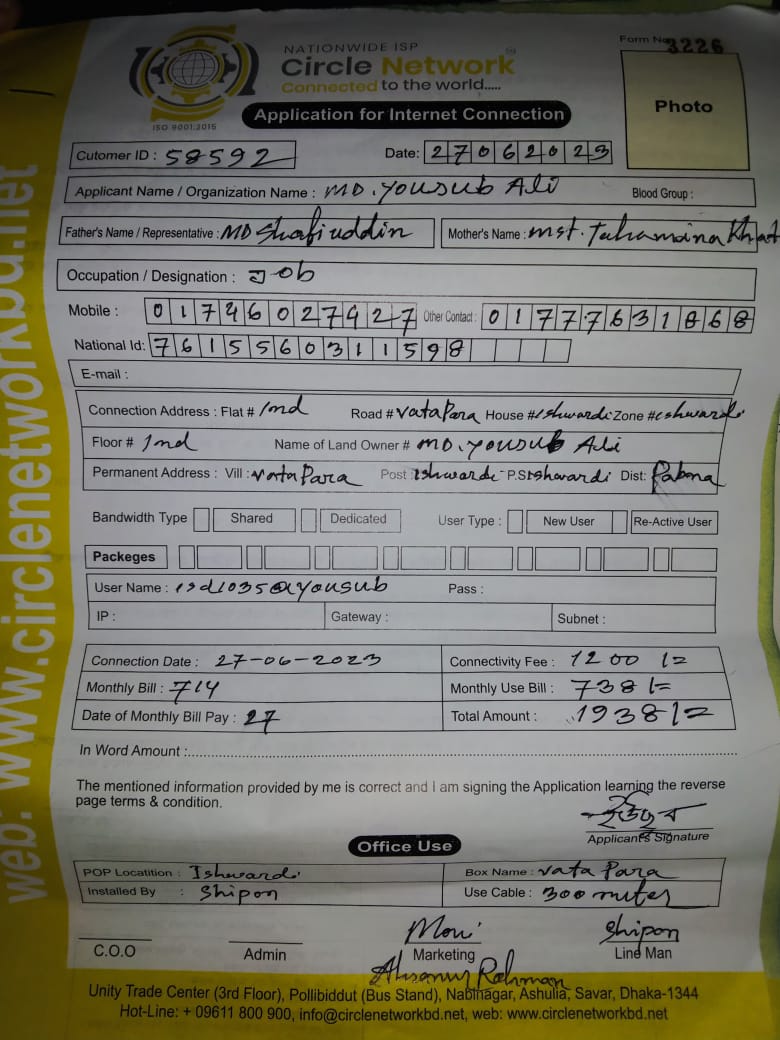 NATIONWIDE ISP
Circle Network
Connected to the world.....
ISO 9001:2015
Form No. 3226
Application for Internet Connection
Photo
Cutomer ID : 58592 Date: 27062023
Applicant Name / Organization Name : MD. Yousub Ali Blood Group :
Father's Name / Representative : MD Shafiuddin Mother's Name : mst. Tahamina Khat
Occupation / Designation : Job
Mobile : 01746027427 Other Contact : 01777631868
National Id: 7615560311598
E-mail :
Connection Address : Flat # 1nd Road # vataPara House # Ishwardi Zone # Ishwardi
Floor # 1nd Name of Land Owner # MD. Yousub Ali
Permanent Address : Vill : vataPara Post Ishwardi P.S Ishwardi Dist: Pabna
Bandwidth Type Shared Dedicated User Type : New User Re-Active User
Packeges
User Name : isd1035@yousub Pass :
IP : Gateway : Subnet :
Connection Date : 27-06-2023 Connectivity Fee : 1200 /=
Monthly Bill : 714 Monthly Use Bill : 738 /=
Date of Monthly Bill Pay : 27 Total Amount : 1938 /=
In Word Amount :
The mentioned information provided by me is correct and I am signing the Application learning the reverse
page terms & condition.
Applicant's Signature
Office Use
POP Locatition : Ishwardi Box Name : vata Para
Installed By : Shipon Use Cable : 300 miter
Moni Shipon
C.O.O Admin Marketing Line Man
Ahsanur Rahman
Unity Trade Center (3rd Floor), Pollibiddut (Bus Stand), Nabinagar, Ashulia, Savar, Dhaka-1344
Hot-Line: + 09611 800 900, info@circlenetworkbd.net, web: www.circlenetworkbd.net
web: www.circlenetworkbd.net